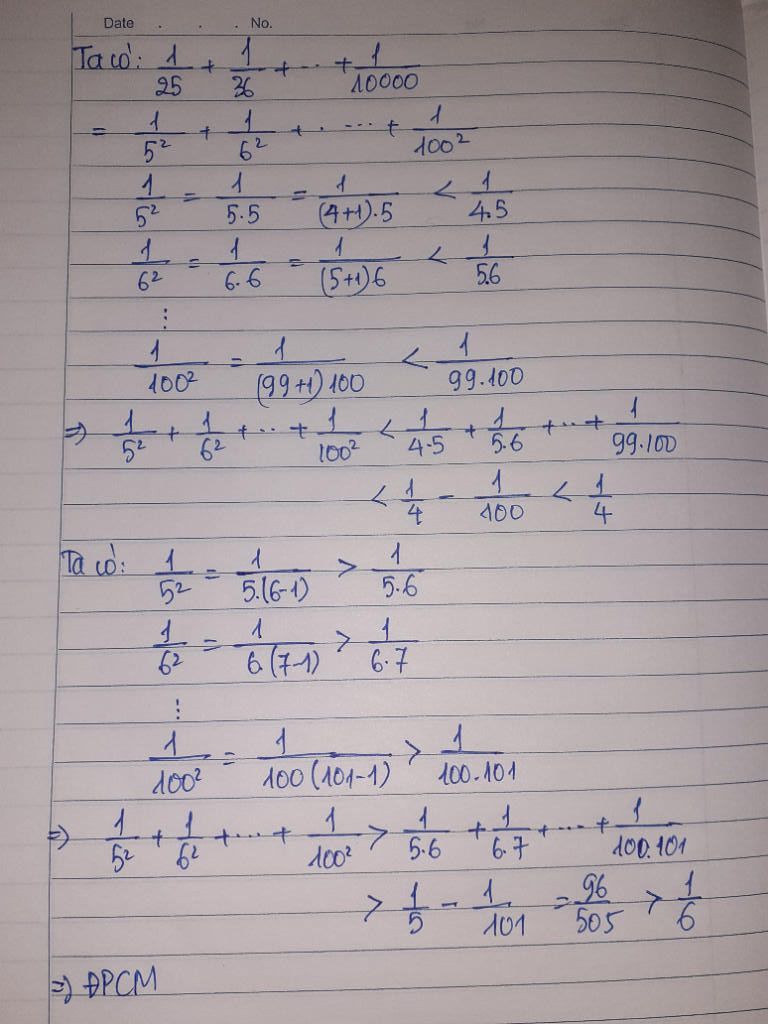 Date . . . No.
Ta có: 1/25 + 1/36 + ... + 1/10000
= 1/5² + 1/6² + . ... + 1/100²
1/5² = 1/5.5 = 1/(4+1).5 < 1/4.5
1/6² = 1/6.6 = 1/(5+1)6 < 1/5.6
⋮
1/100² = 1/(99+1)100 < 1/99.100
=> 1/5² + 1/6² + ... + 1/100² < 1/4.5 + 1/5.6 + ... + 1/99.100
< 1/4 - 1/100 < 1/4
Ta có: 1/5² = 1/5.(6-1) > 1/5.6
1/6² = 1/6.(7-1) > 1/6.7
⋮
1/100² = 1/100(101-1) > 1/100.101
=> 1/5² + 1/6² + ... + 1/100² > 1/5.6 + 1/6.7 + ... + 1/100.101
> 1/5 - 1/101 = 96/505 > 1/6
=> ĐPCM